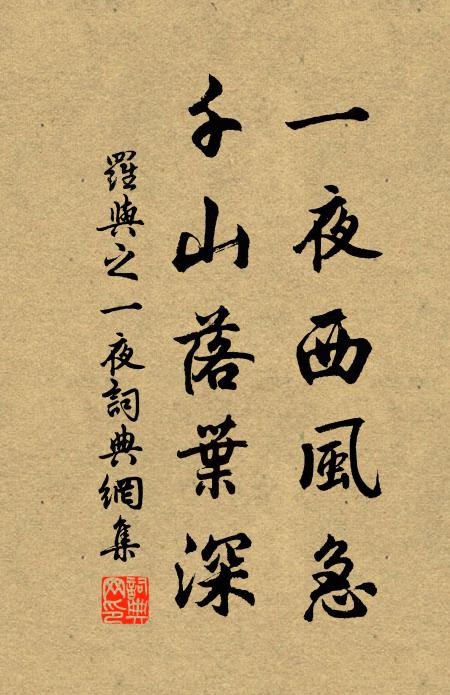 一夜西風急
千山落葉深
羅與之一夜詞典網集
詞典網印